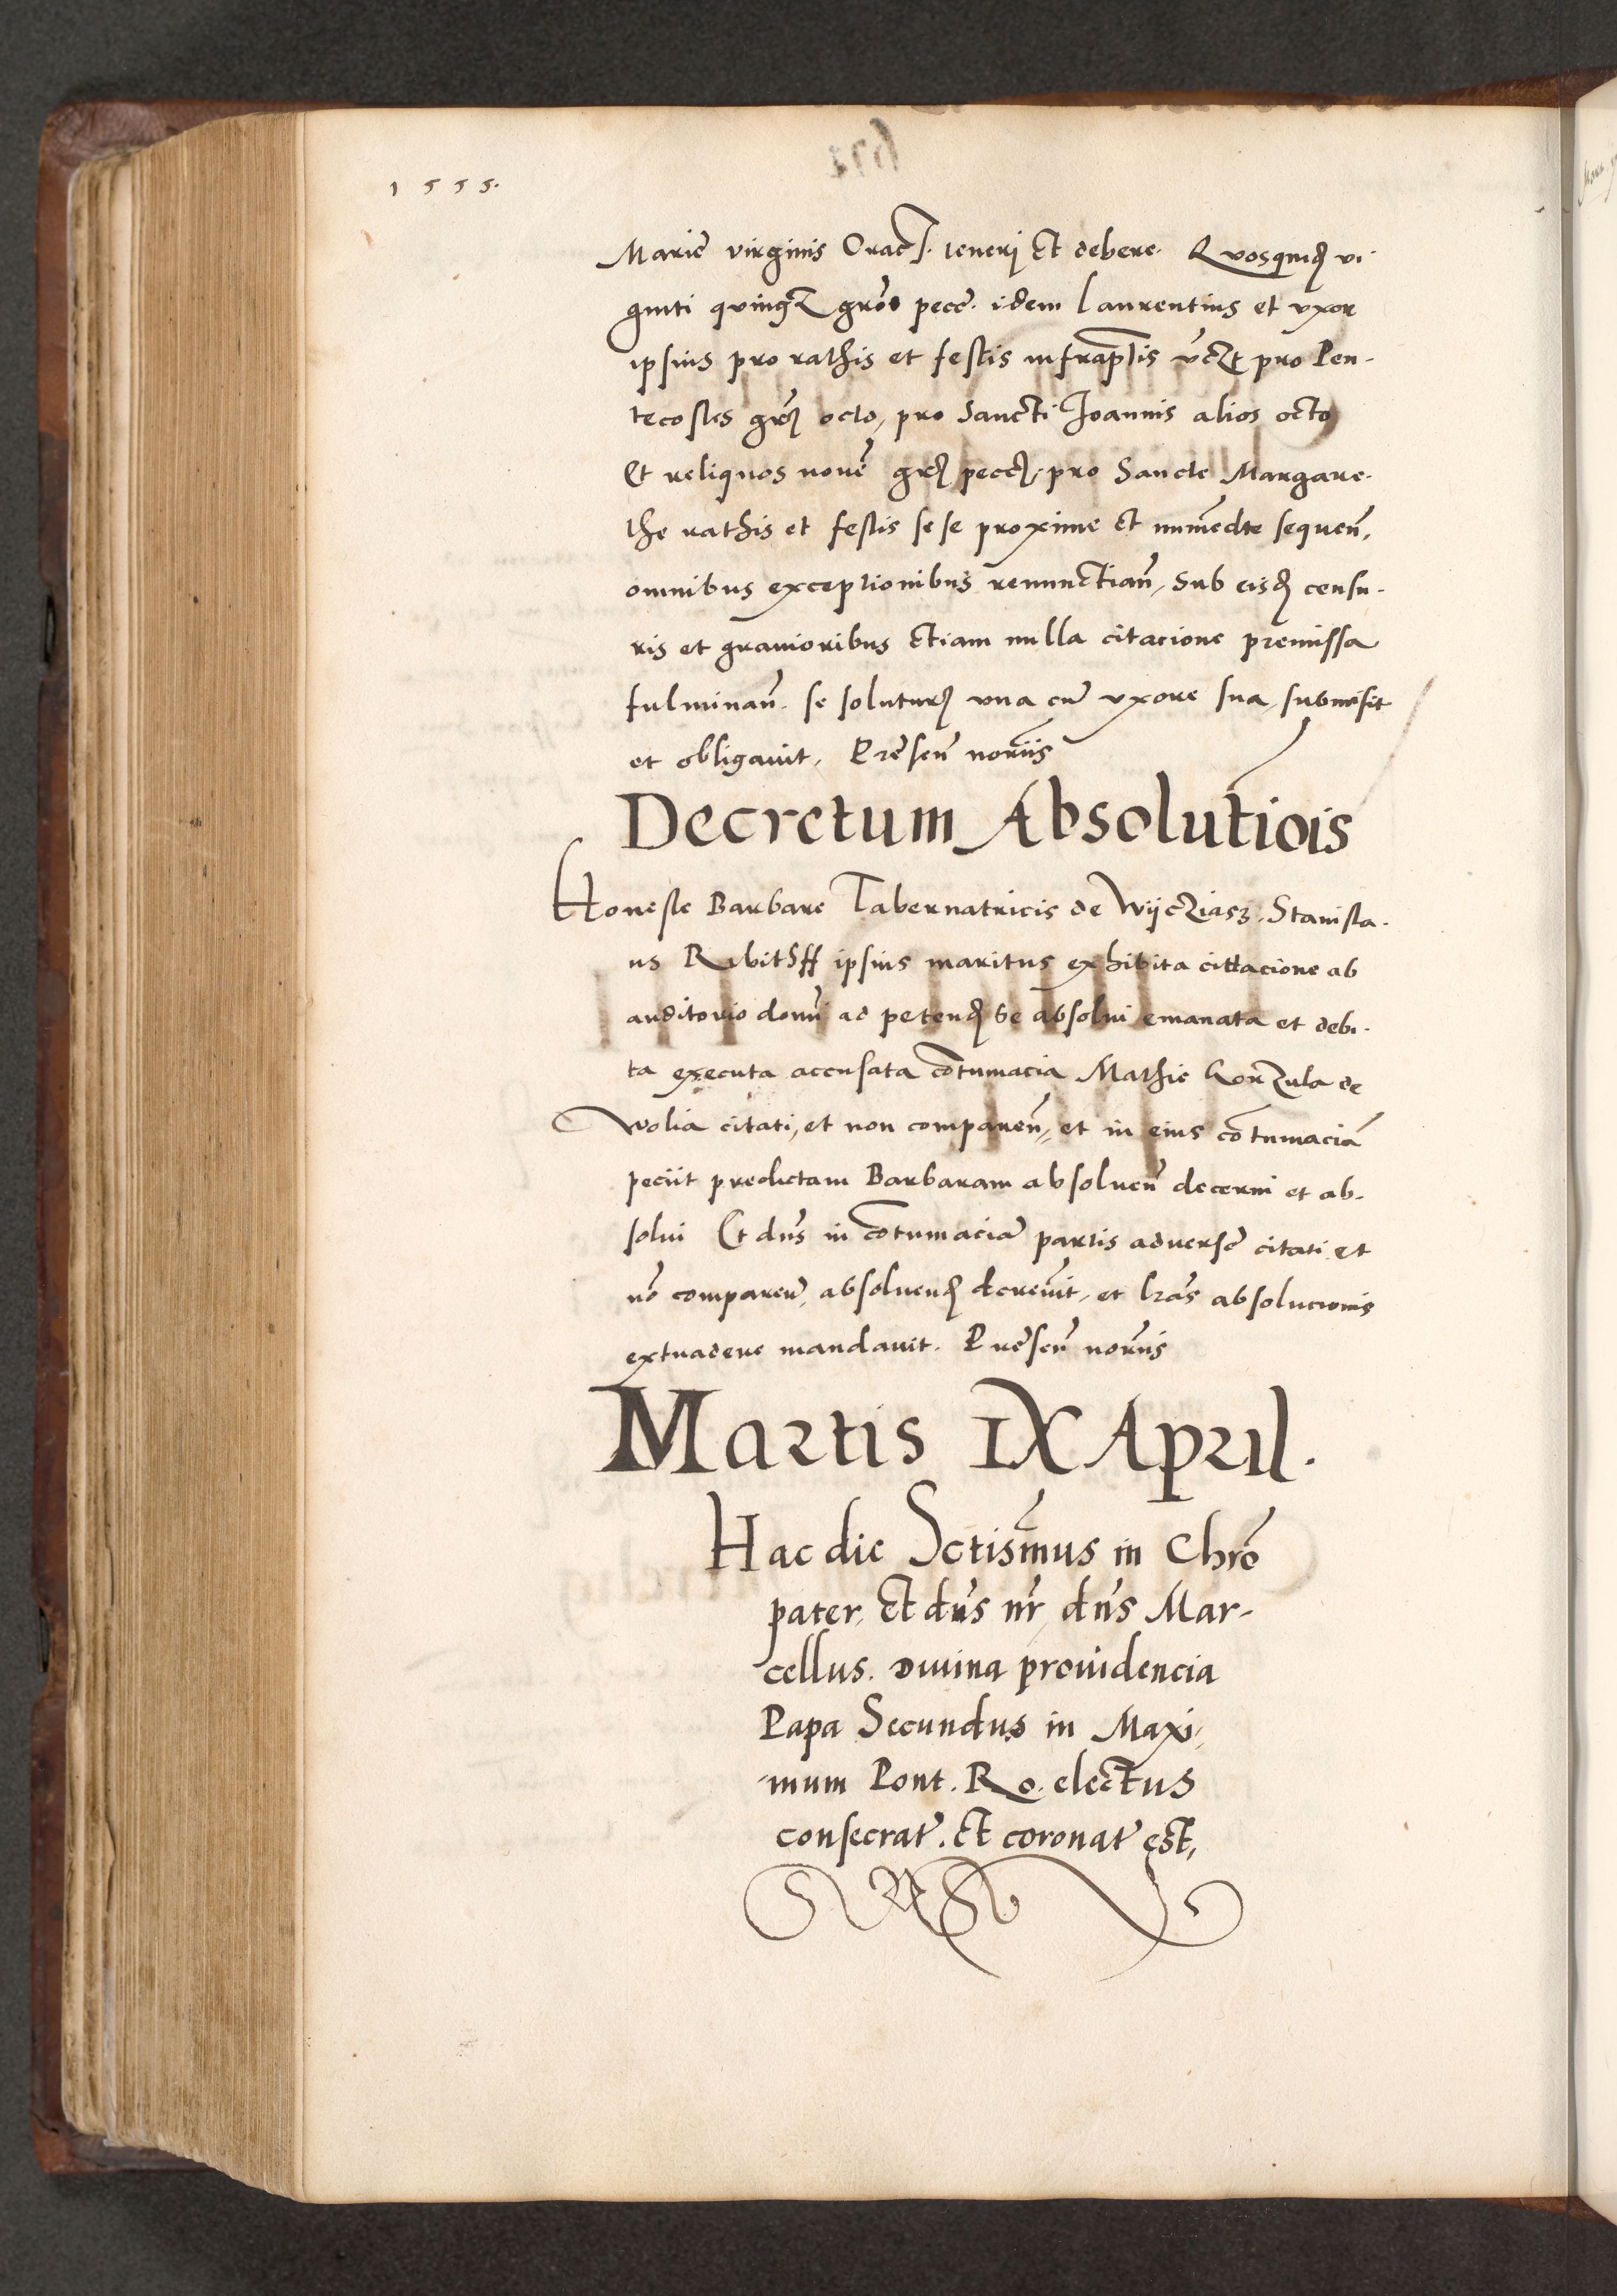 1555.
Marie virginis Crac. teneri et debere. Quosquid vi-
ginti quinq gros pecc. idem Laurentius et vxor
ipsius pro rathis et festis infraptis vczt pro Pen-
tecostes gros octo, pro Sancti Joannis alios octo
Et reliquos novē gros pecc. pro Sancte Margare-
the rathis et festis sese proxime et immedte sequen̄,
omnibus exceptionibus renunctian̄, Sub eisd censu-
ris et gravioribus etiam nulla citacione premissa
fulminan̄. se soluturū vna cū vxore sua, submisit
et obligavit, Presen̄ noriis
Decretum Absolutiōis
Honeste Barbare Tabernatricis de Wijcziasz. Stanisla-
us Rubitsff ipsius maritus exhibita cittacione ab
auditorio domī ad petend se absolui emanata et debi-
ta executa accusata cōtumacia Mathie Korzula de
Wolia citati, et non comparen̄, et in eius cōtumaciā
peciit predictam Barbaram absoluen̄ decerni et ab-
solui Et dn̄s in cōtumaciā partis aduerse citati et
nō comparen̄, absoluend decreuit, et lr̄as absolucionis
extradere mandavit. Presen̄ noriis
Martis IX April.
Hac die Sctissm̄us in Chrō
pater, Et dn̄s nr̄, dn̄s Mar-
cellus. Diuina prouidencia
Papa Secundus in Maxi-
mum Pont. Ro. electus
consecrat. Et coronat est,